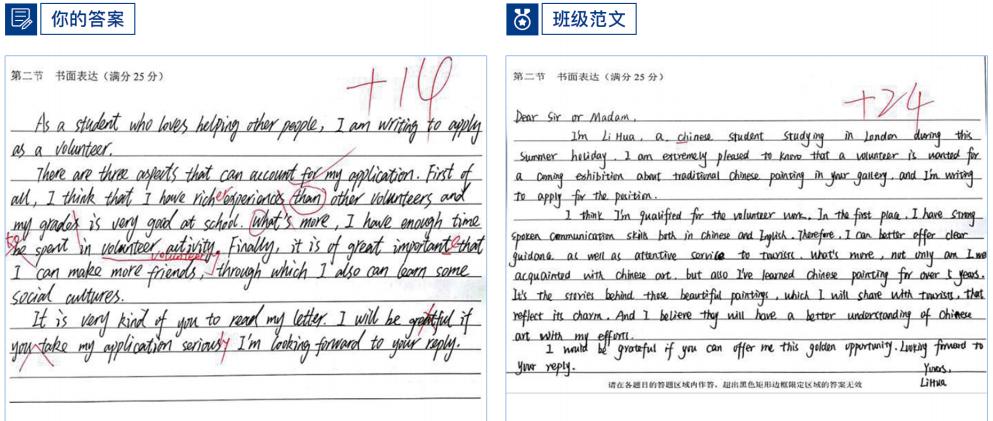 你的答案
第二节 书面表达（满分 25 分）
+14
As a student who loves helping other people, I am writing to apply
as a volunteer.
There are three aspects that can account for my application. First of
all, I think that I have richer experiences than other volunteers and
my grades is very good at school. What's more, I have enough time
to be spent in volunteer activity. Finally, it is of great important that
volunteering
I can make more friends, through which I also can learn some
social cultures.
It is very kind of you to read my letter. I will be greatful if
you take my application seriously I'm looking forward to your reply.
班级范文
第二节 书面表达（满分 25 分）
+24
Dear Sir or Madam,
I'm Li Hua, a chinese student studying in London during this
summer holiday. I am extremely pleased to know that a volunteer is wanted for
a coming exhibition about traditional Chinese painting in your gallery, and I'm writing
to apply for the position.
I think I'm qualified for the volunteer work. In the first place, I have strong
spoken communication skills both in Chinese and English. Therefore, I can better offer clear
guidance as well as attentive service to tourists. what's more, not only am I well
acquainted with chinese art, but also I've learned chinese painting for over 5 years.
It's the stories behind those beautiful paintings, which I will share with tourists, that
reflect its charm. And I believe they will have a better understanding of Chinese
art with my efforts.
I would be grateful if you can offer me this golden opportunity. Looking forward to
your reply.
Yours,
LiHua
请在各题目的答题区域内作答，超出黑色矩形边框限定区域的答案无效